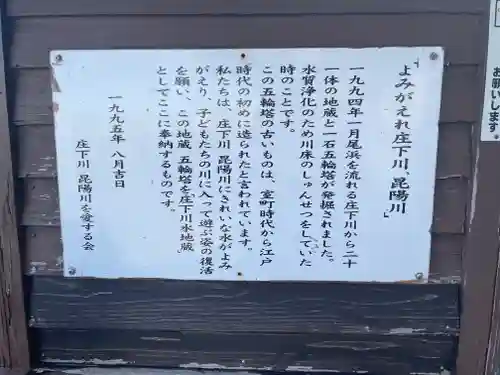 よみがえれ庄下川、昆陽川」
一九九四年一月尾浜を流れる庄下川から二十
一体の地蔵と一石五輪塔が発掘されました。
水質浄化のため川床のしゅんせつをしていた
時のことです。
この五輪塔の古いものは、室町時代から江戸
時代の初めに造られたと言われています。
私たちは、庄下川 昆陽川にきれいな水がよみ
がえり、子どもたちの川に入って遊ぶ姿の復活
を願い、この地蔵 五輪塔を庄下川水地蔵」
としてここに奉納するものです。
一九九五年 八月吉日
庄下川 昆陽川を愛する会
お願いします。